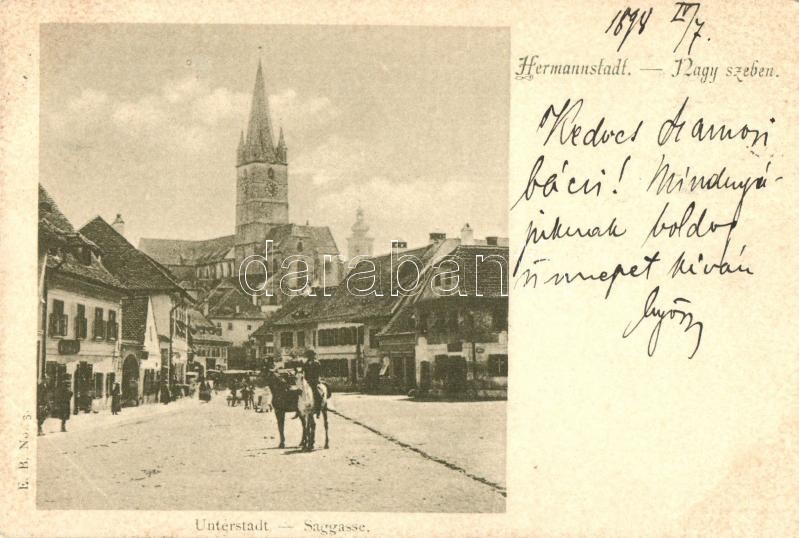 1898 IV/7.
Hermannstadt. — Nagy szeben.
Kedves Marosi
bácsi! Mindnyá-
juknak boldog
ünnepet kíván
György
darabanth
E. B. No. 3.
Unterstadt — Saggasse.